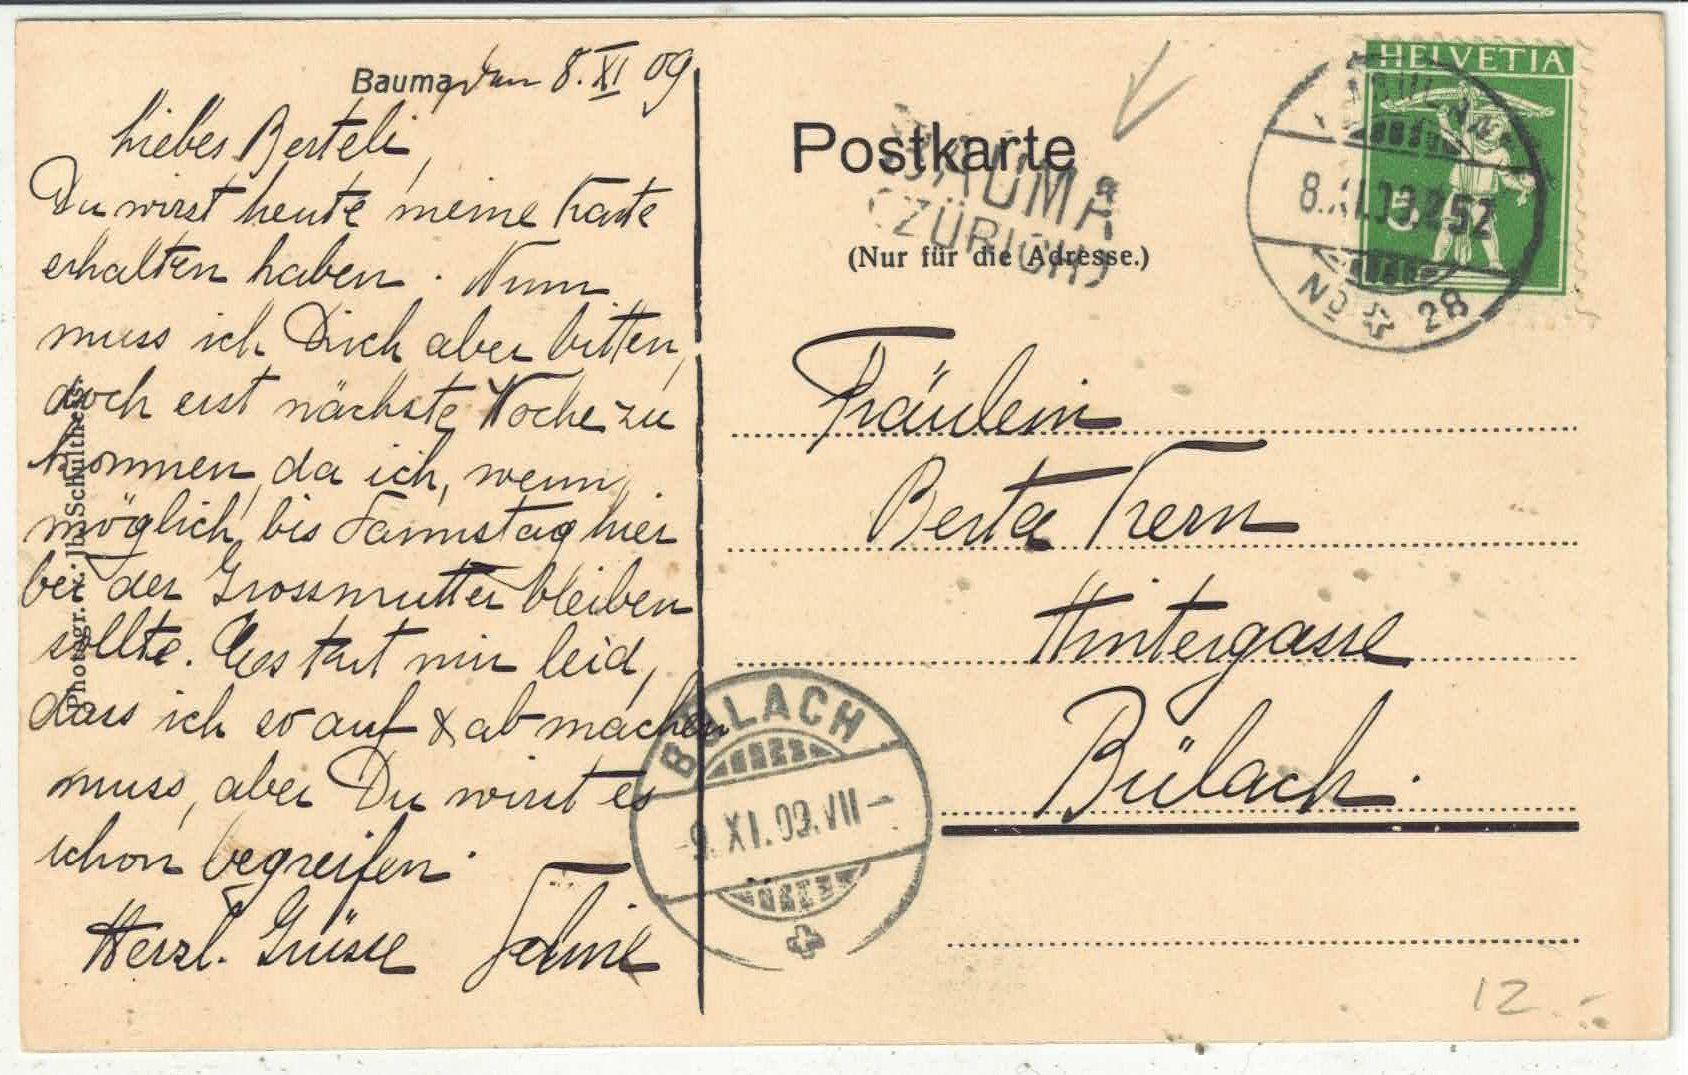 Bauma, den 8. XI 09
Liebes Berteli,
Du wirst heute meine Karte
erhalten haben. Nun
muss ich Dich aber bitten,
doch erst nächste Woche zu
kommen, da ich, wenn
möglich, bis Samstag hier
bei der Grossmutter bleiben
sollte. Es tut mir leid,
dass ich so auf & ab machen
muss, aber Du wirst es
schon begreifen.
Herzl. Grüsse
Photogr. v. Jb. Schulthess.
Postkarte
(Nur für die Adresse.)
BAUMA
(ZÜRICH)
HELVETIA
5
8.XI.09.
No 28
Fräulein
Berta Kern
Hintergasse
Bülach.
BÜLACH
-9.XI.09.VII-
12.-